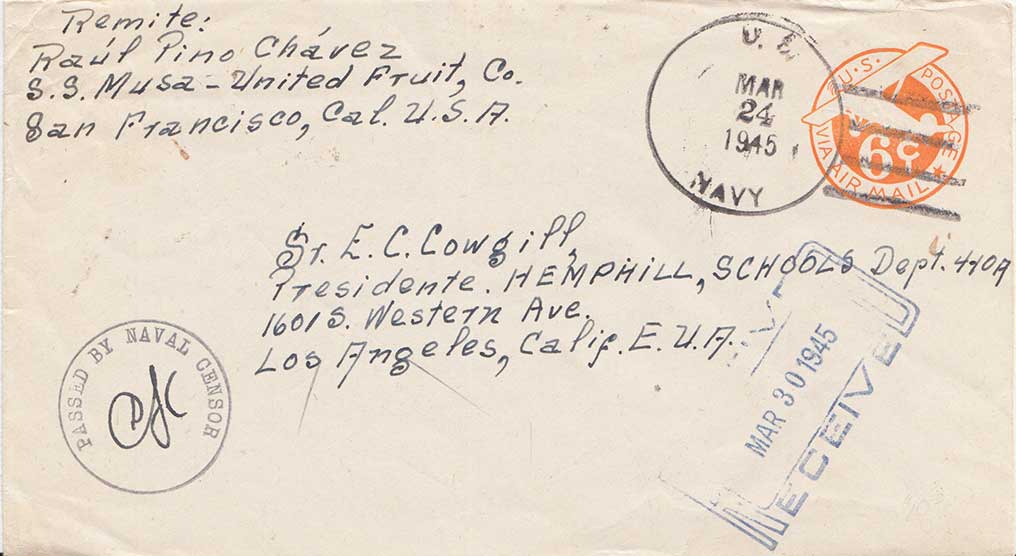 Remite:
Raúl Pino Chávez
S.S. Musa - United Fruit, Co.
San Francisco, Cal. U.S.A.
U.S.
MAR
24
1945
NAVY
U.S. POSTAGE
6¢
VIA AIR MAIL
Sr. E. C. Cowgill,
Presidente. HEMPHILL, SCHOOLS Dept. 440A
1601 S. Western Ave.
Los Angeles, Calif. E.U.A.
PASSED BY NAVAL CENSOR
MAR 30 1945
RECEIVED